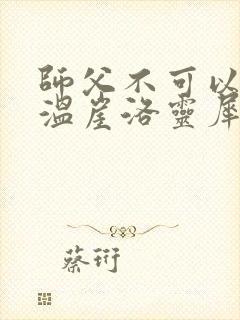 師父不可以
溫崖洛靈犀
蔡衍